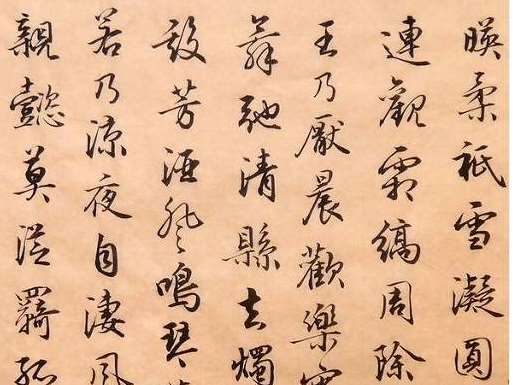 暎柔祇雪凝圓
連觀霜縞周除
王乃厭晨歡樂宵
舞弛清縣去燭
殿芳酒登鳴琴
若乃涼夜自淒風
親懿莫從羈孤